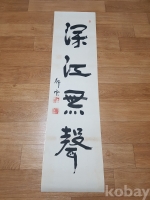 深江無聲
kobay